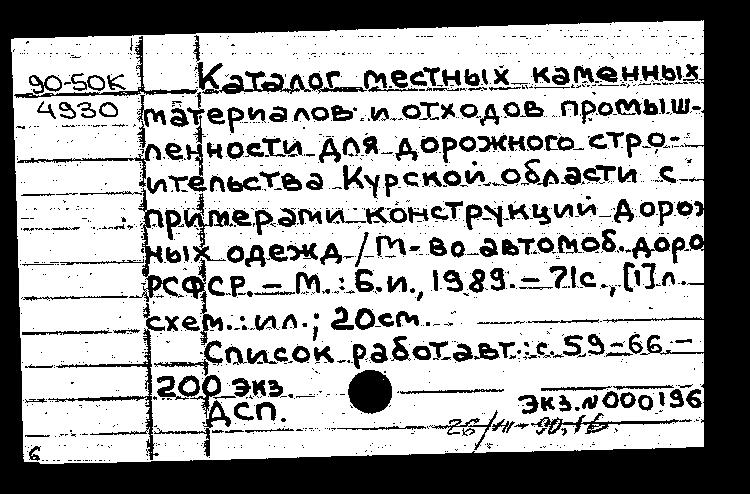 90-50К Каталог местных каменных
4930 материалов и отходов промыш-
ленности для дорожного стро-
ительства Курской области с
примерами конструкций дорож
ных одежд / М-во автомоб. доро
РСФСР. – М.: Б.и., 1989. – 71с., [1]л.
схем.: ил.; 20см.
Список работ авт.: с. 59-66. –
200 экз.
ДСП. Экз. №000196
6